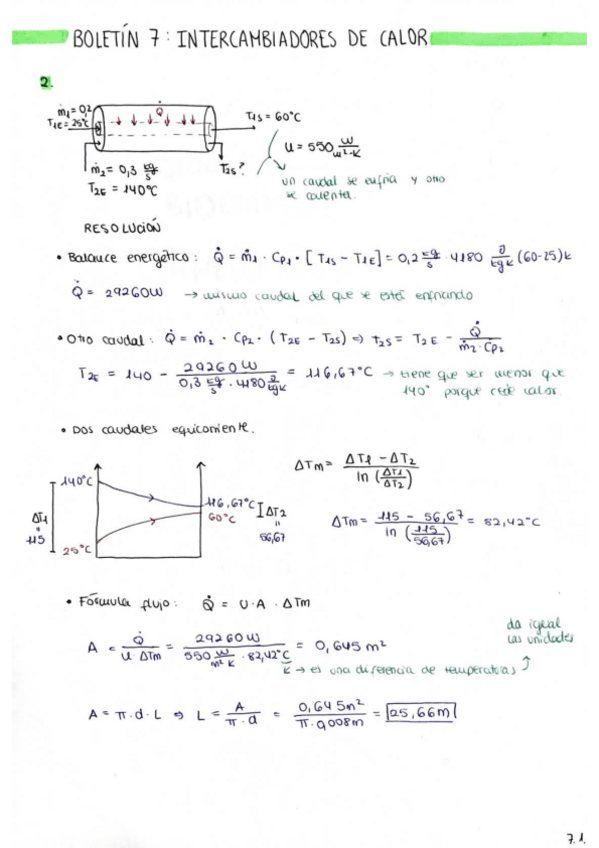 BOLETÍN 7: INTERCAMBIADORES DE CALOR
2.
ṁ1 = 0,2
T1E = 25°C
Q̇
T1S = 60°C
U = 550 W/m²·K
ṁ2 = 0,3 kg/s
T2E = 140°C
T2S?
un caudal se enfría y otro
se calienta.
RESOLUCIÓN
• Balance energético: Q̇ = ṁ1 · Cp1 · [T1S − T1E] = 0,2 kg/s · 4180 J/kgK (60-25)K
Q̇ = 29260W → mismo caudal del que se está enfriando
• Otro caudal: Q̇ = ṁ2 · Cp2 · (T2E − T2S) ⇒ t2S = T2E − Q̇/ṁ2·Cp2
T2E = 140 − 29260W/0,3 kg/s · 4180 J/kgK = 116,67°C → tiene que ser menor que
140° porque cede calor.
• Dos caudales equicorriente.
140°C
ΔT1
"
115
25°C
116,67°C
60°C
ΔT2
"
56,67
ΔTm = ΔT1 − ΔT2 / ln (ΔT1/ΔT2)
ΔTm = 115 − 56,67 / ln (115/56,67) = 82,42°C
• Fórmula flujo: Q̇ = U·A·ΔTm
da igual
las unidades
A = Q̇/U ΔTm = 29260W / 550 W/m²K · 82,42°C = 0,645 m²
K → es una diferencia de temperaturas
A = π·d·L ⇒ L = A/π·d = 0,645m²/π·0,008m = 25,66m
7.1.